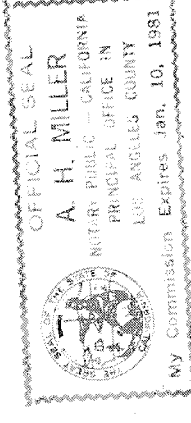 OFFICIAL SEAL
A. H. MILLER
NOTARY PUBLIC - CALIFORNIA
PRINCIPAL OFFICE IN
LOS ANGELES COUNTY
My Commission Expires Jan. 10, 1981